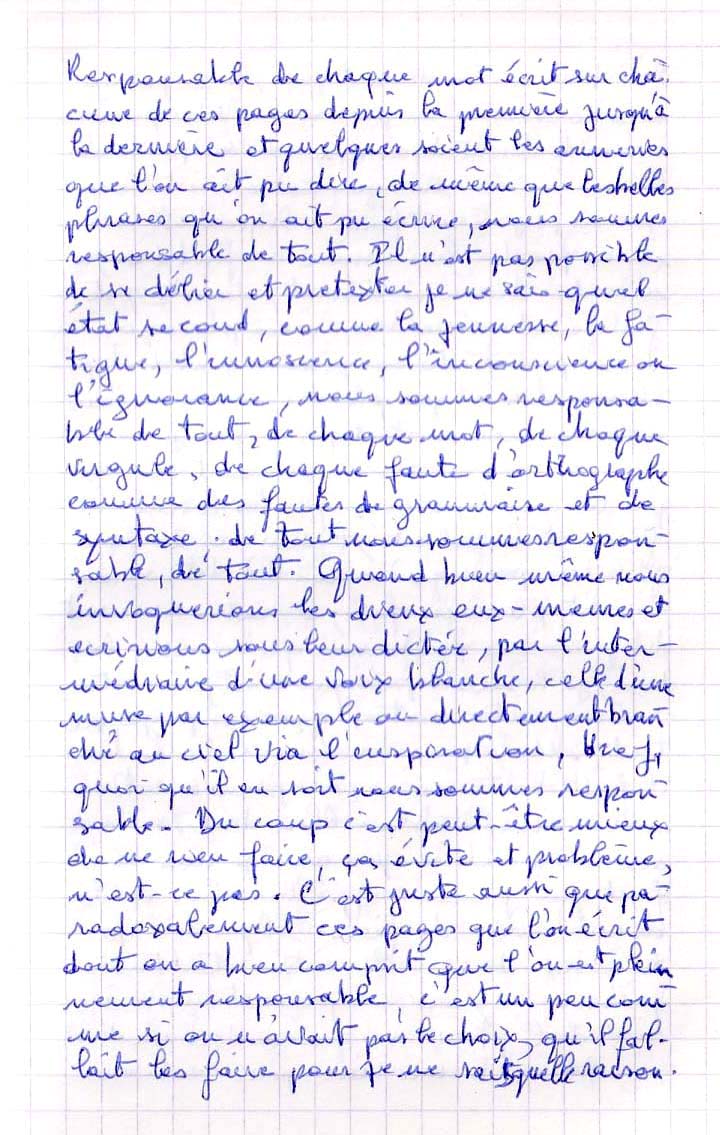 Responsable de chaque mot écrit sur cha-
cune de ces pages depuis la première jusqu'à
la dernière et quelques soient les anneries
que l'on ait pu dire, de même que les belles
phrases qu'on ait pu écrire, nous sommes
responsable de tout. Il n'est pas possible
de se délier et pretexter je ne sais quel
état second, comme la jeunesse, la fa-
tigue, l'innoscence, l'inconscience ou
l'ignorance, nous sommes responsa-
ble de tout, de chaque mot, de chaque
virgule, de chaque faute d'orthographe
comme des fautes de grammaire et de
syntaxe. de tout nous sommes respon-
sable, de tout. Quand bien même nous
invoquerions les dieux eux-memes et
ecrivons sous leur dictée, par l'inter-
médiaire d'une voix blanche, celle d'une
muse par exemple ou directement bran
ché au ciel via l'inspiration, bref,
quoi qu'il en soit nous sommes respon
sable. Du coup c'est peut-être mieux
de ne rien faire, ça évite et problème,
n'est-ce pas. C'est juste aussi que pa-
radoxalement ces pages que l'on écrit
dont on a bien comprit que l'on est plein
nement responsable, c'est un peu com
me si on n'avait pas le choix, qu'il fal-
lait les faire pour je ne sait quelle raison.